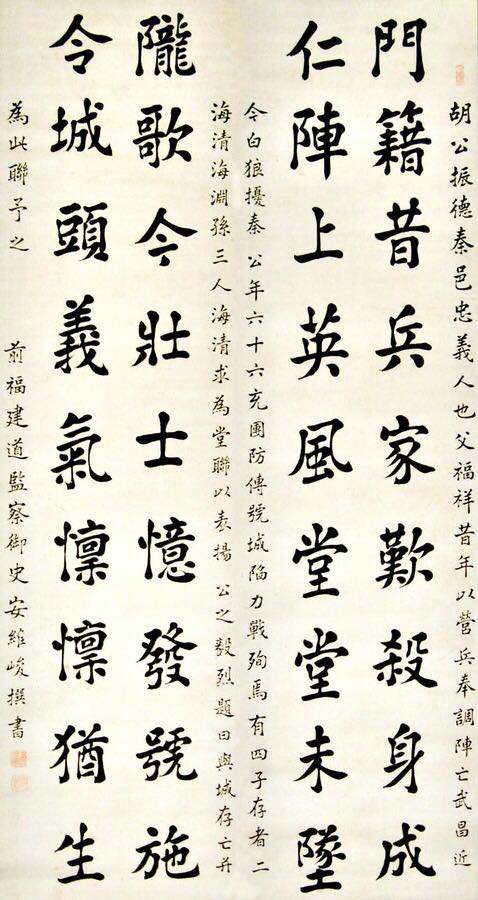 胡公振德秦邑忠義人也父福祥昔年以營兵奉調陣亡武昌近
門籍昔兵家歎殺身成
仁陣上英風堂堂未墜
令白狼擾秦 公年六十六充團防傳號城陷力戰殉焉有四子存者二
海清海淵孫三人海清求為堂聯以表揚 公之毅烈題曰與城存亡并
隴歌今壯士憶發號施
令城頭義氣懍懍猶生
為此聯予之 前福建道監察御史安維峻撰書